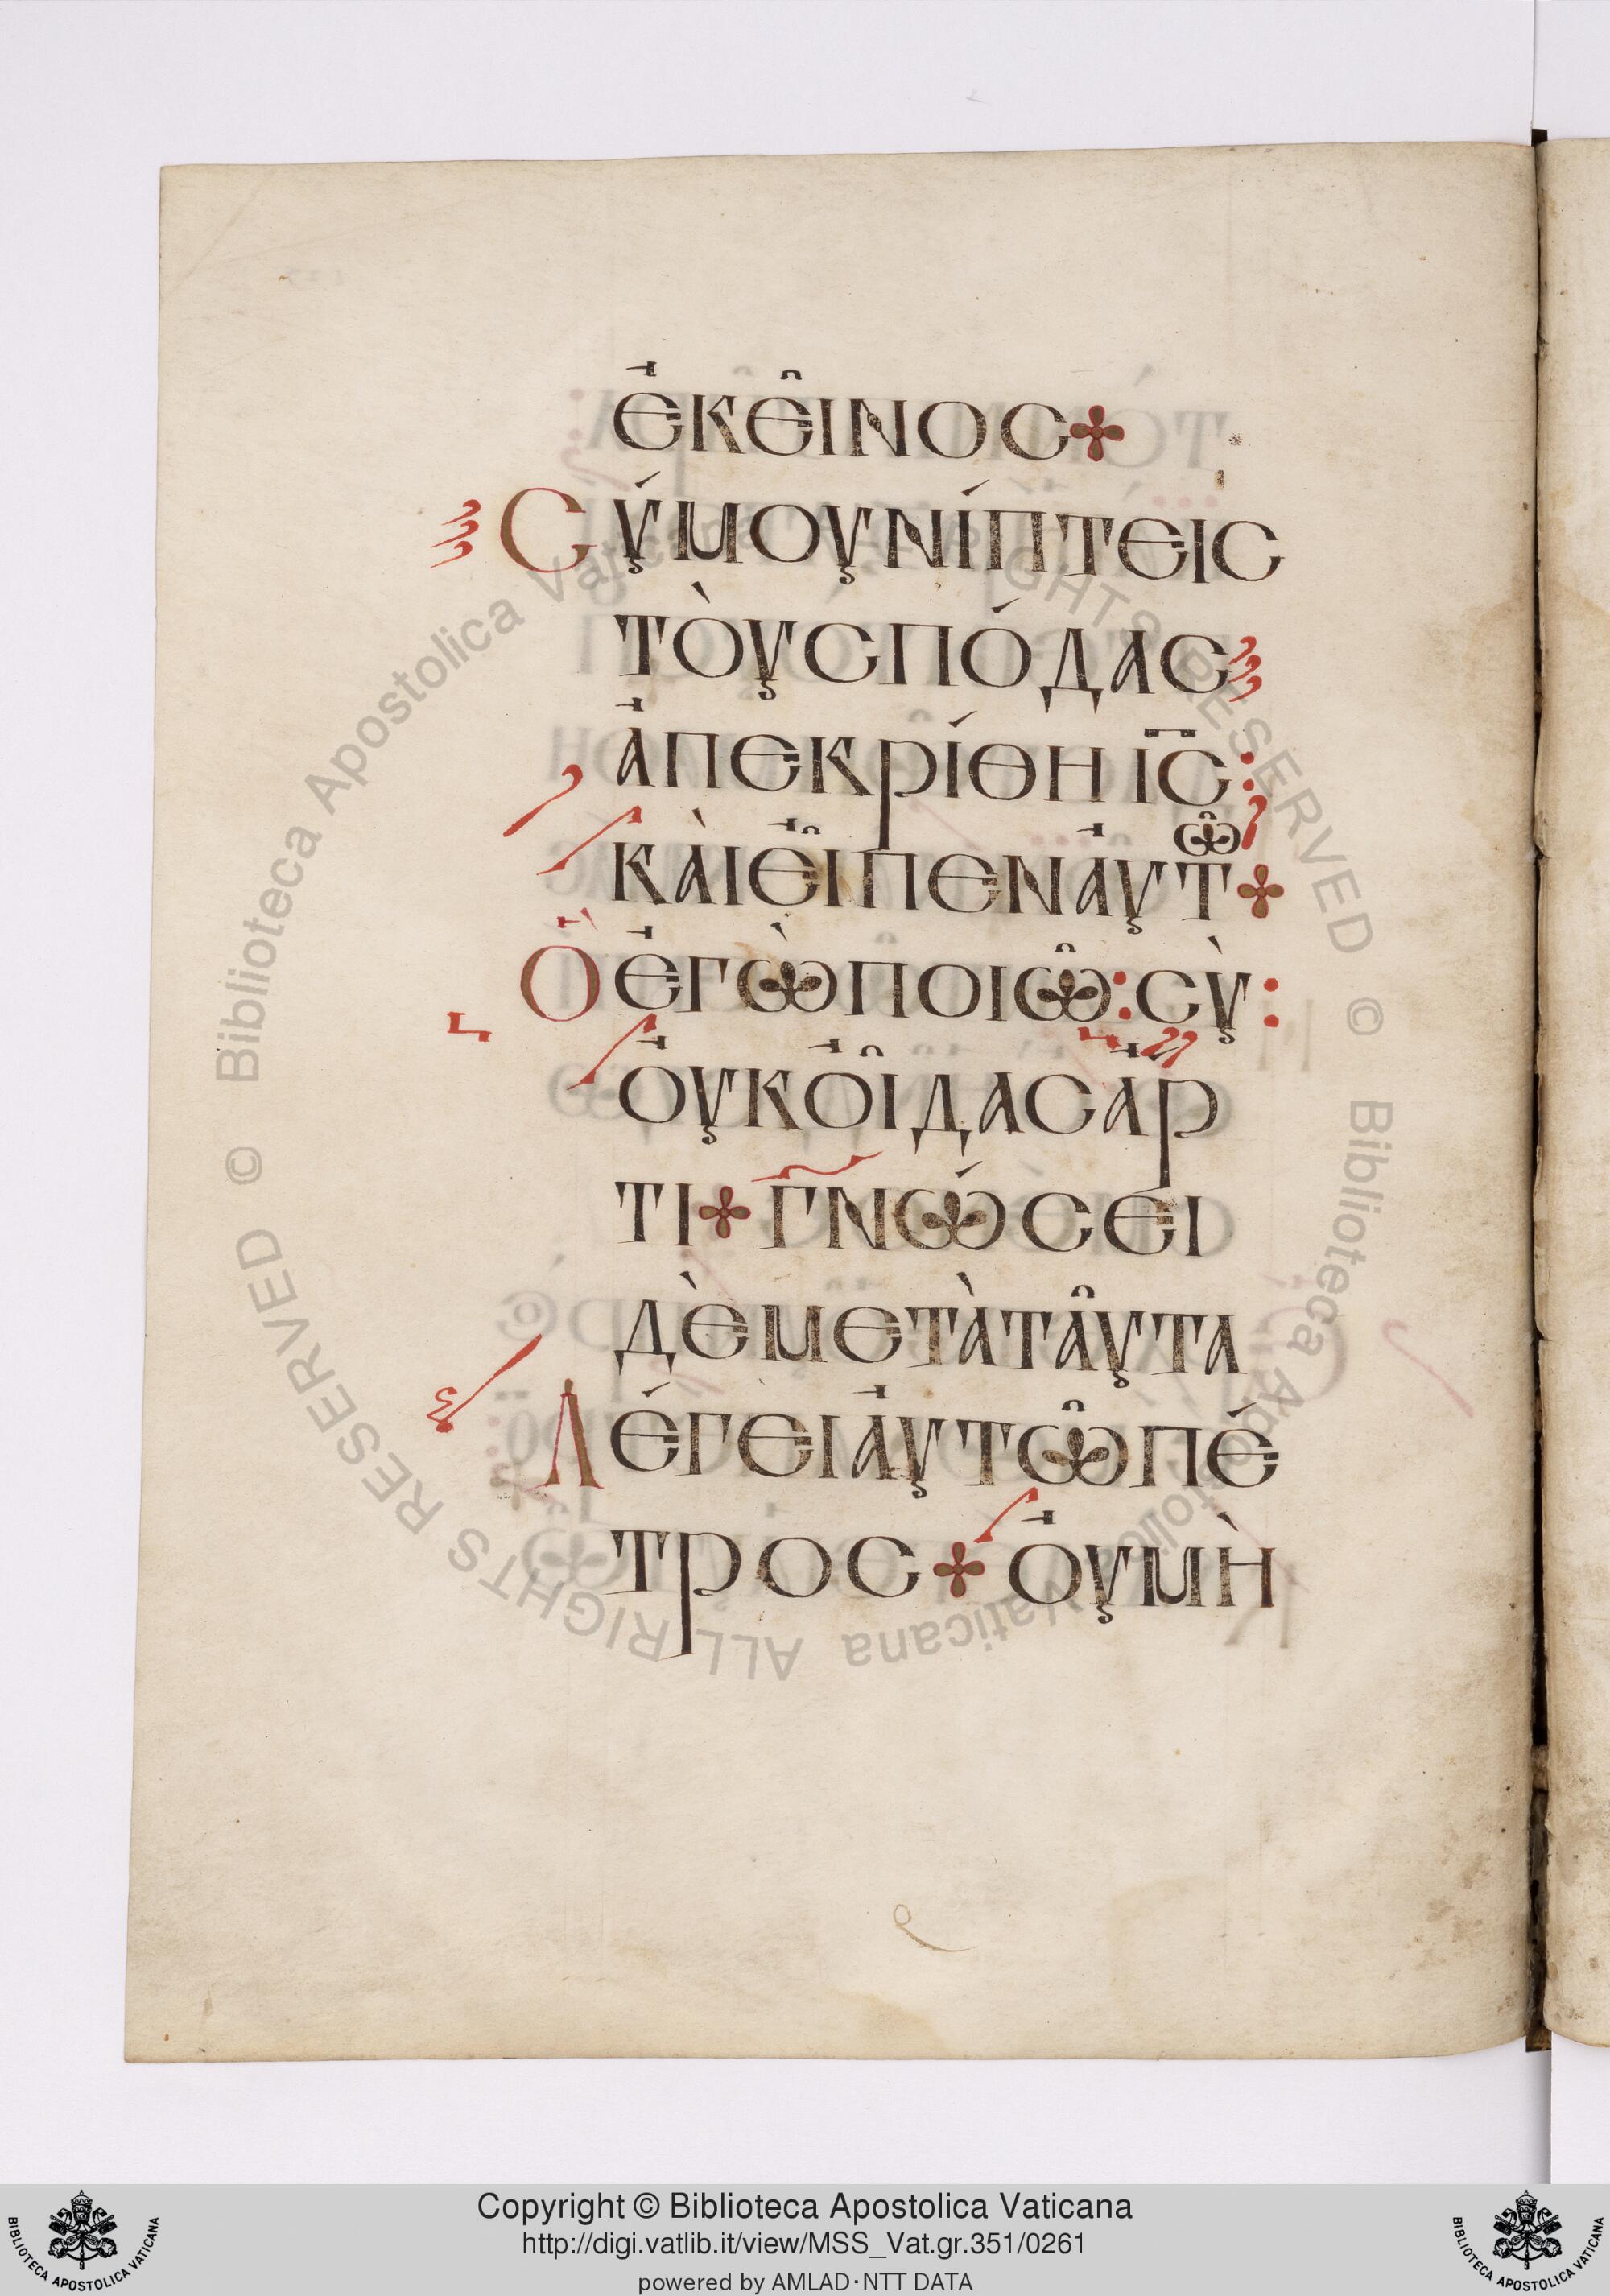 ἐκεῖνος
Σύ μου νίπτεις
τοὺς πόδας
ἀπεκρίθη ΙΣ̅:
καὶ εἶπεν αὐτῶ
Ὃ ἐγὼ ποιῶ: σὺ:
οὐκ οἶδας ἄρ
τι γνώσει
δὲ μετὰ ταῦτα
Λέγει αὐτῶ πέ
τρος οὐ μὴ
© Biblioteca Apostolica Vaticana ALL RIGHTS RESERVED © Biblioteca Apostolica Vaticana ALL RIGHTS RESERVED
Copyright © Biblioteca Apostolica Vaticana
http://digi.vatlib.it/view/MSS_Vat.gr.351/0261
powered by AMLAD·NTT DATA
BIBLIOTECA APOSTOLICA VATICANA
BIBLIOTECA APOSTOLICA VATICANA